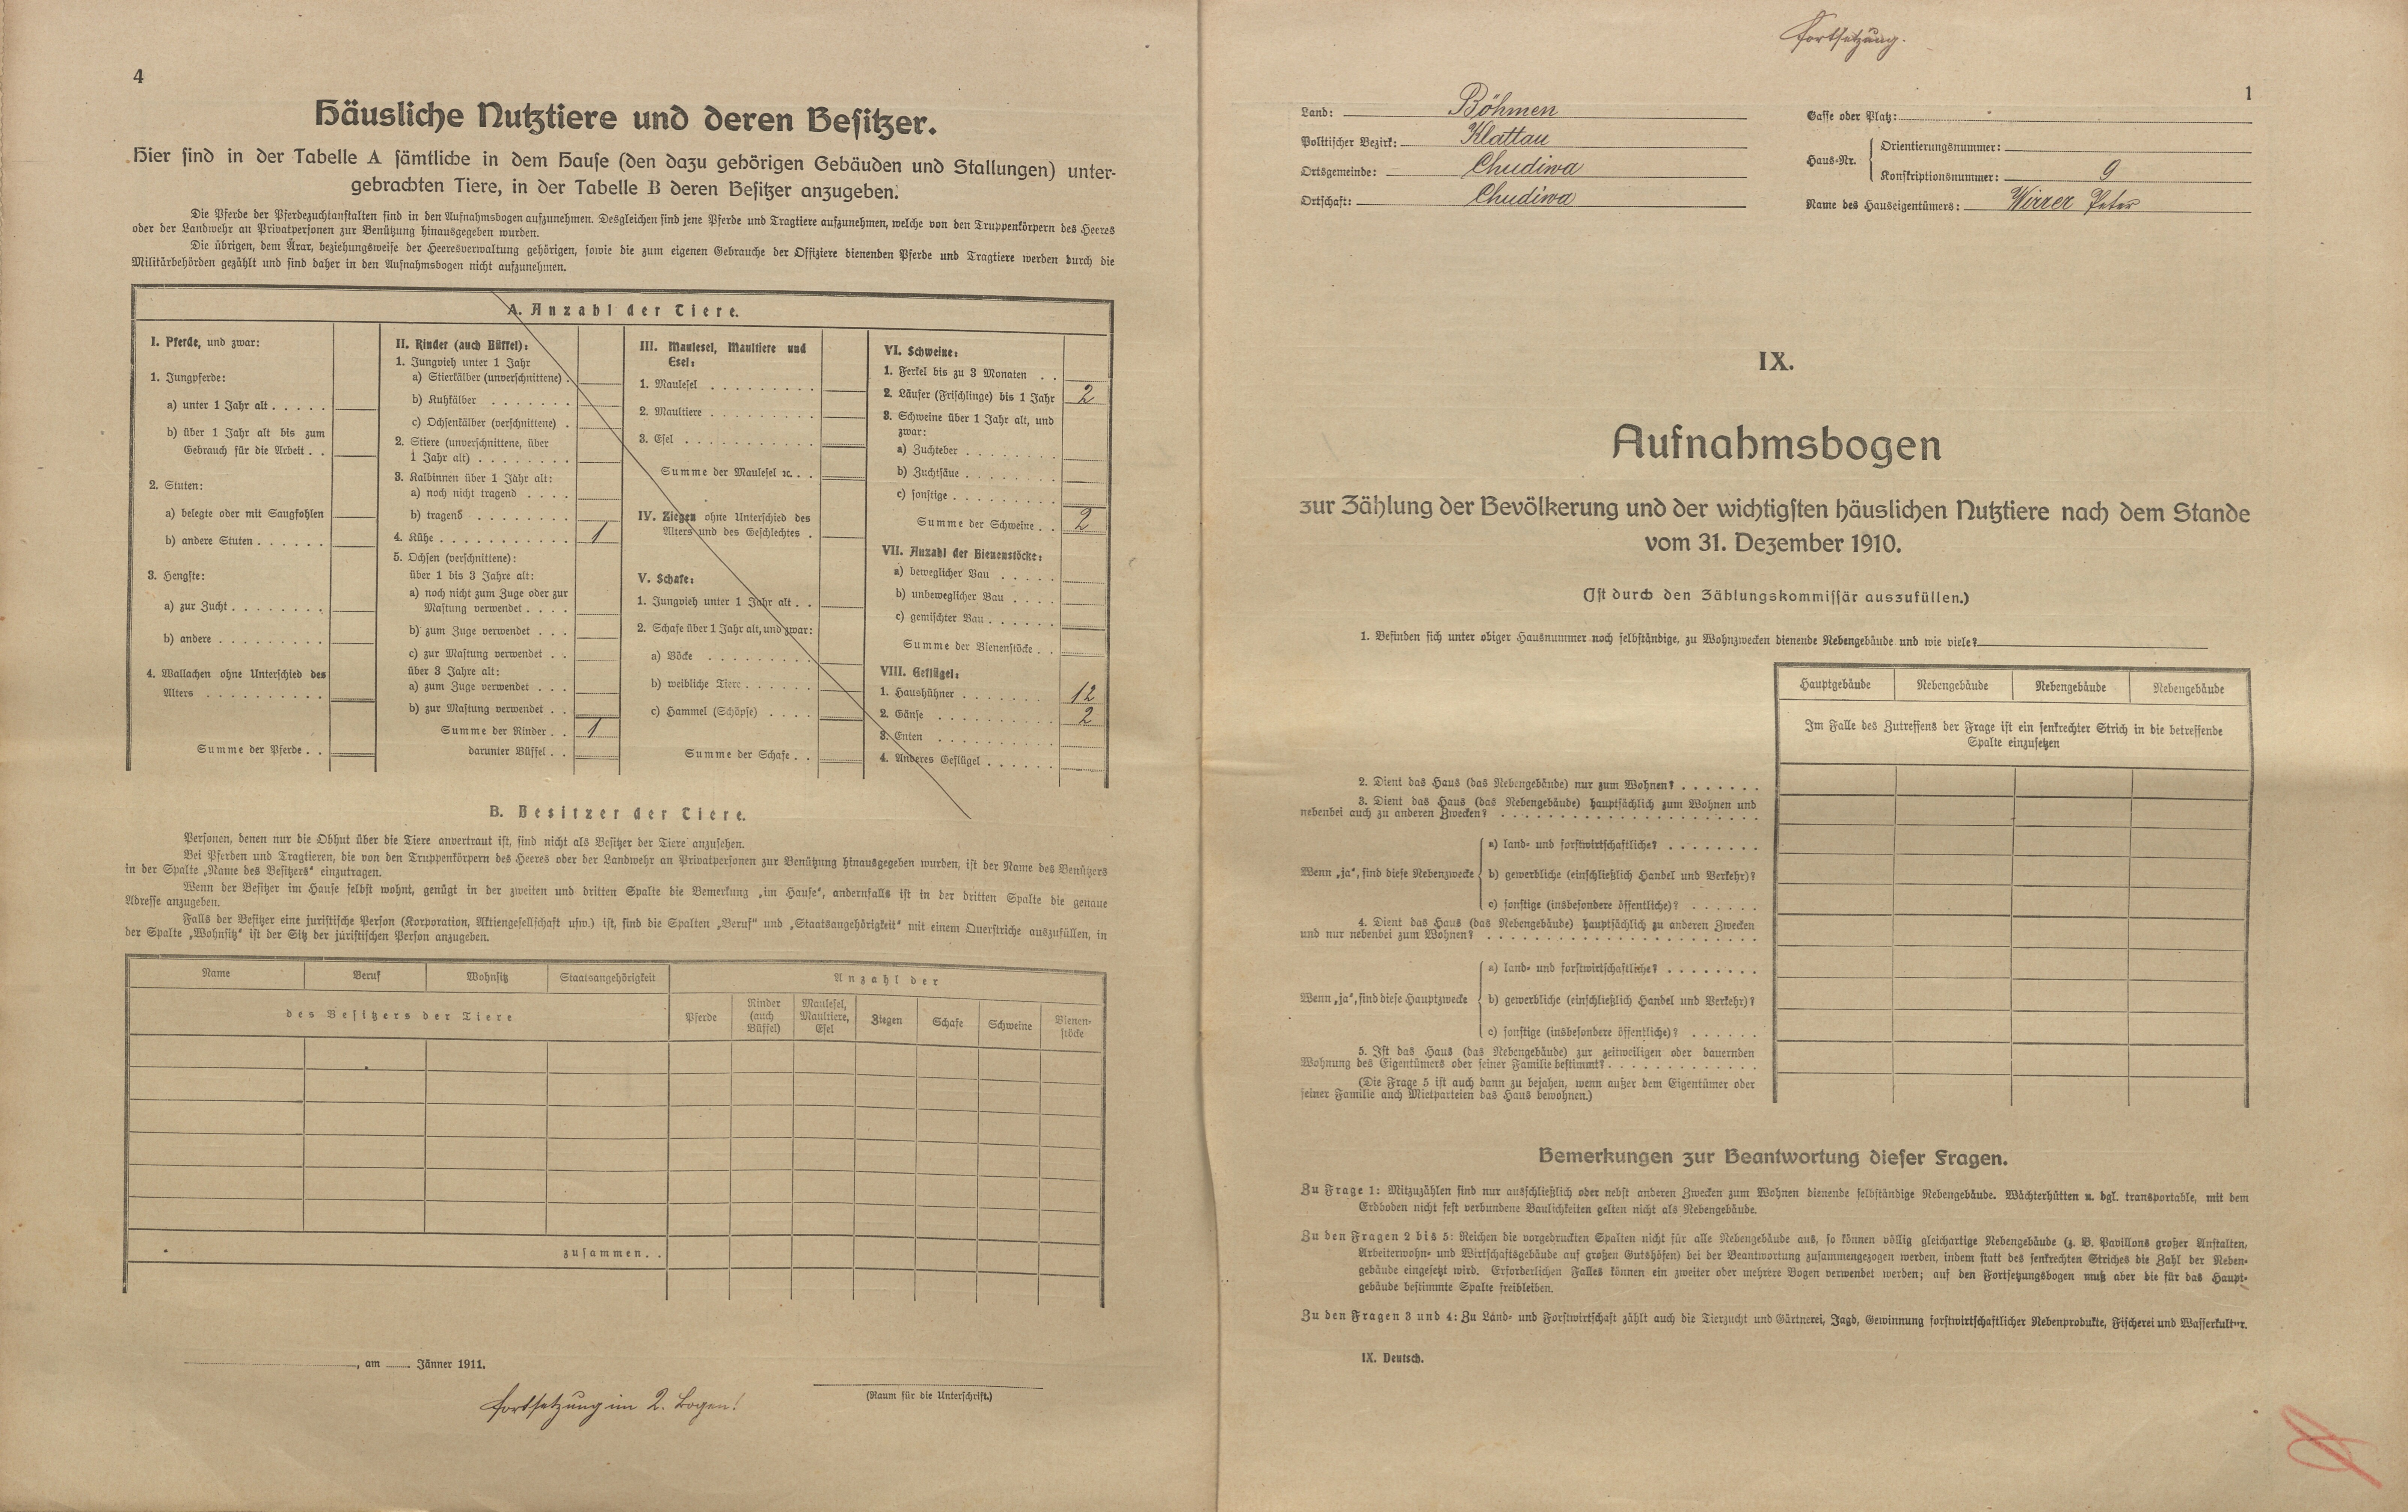 4
Häusliche Nutztiere und deren Besitzer.
Hier sind in der Tabelle A sämtliche in dem Hause (den dazu gehörigen Gebäuden und Stallungen) unter-
gebrachten Tiere, in der Tabelle B deren Besitzer anzugeben.
Die Pferde der Pferdezuchtanstalten sind in den Aufnahmsbogen aufzunehmen. Desgleichen sind jene Pferde und Tragtiere aufzunehmen, welche von den Truppenkörpern des Heeres
oder der Landwehr an Privatpersonen zur Benützung hinausgegeben wurden.
Die übrigen, dem Ärar, beziehungsweise der Heeresverwaltung gehörigen, sowie die zum eigenen Gebrauche der Offiziere dienenden Pferde und Tragtiere werden durch die
Militärbehörden gezählt und sind daher in den Aufnahmsbogen nicht aufzunehmen.
A. Anzahl der Tiere.
I. Pferde, und zwar:
1. Jungpferde:
a) unter 1 Jahr alt . . . . .
b) über 1 Jahr alt bis zum
Gebrauch für die Arbeit . .
2. Stuten:
a) belegte oder mit Saugfohlen
b) andere Stuten . . . . . .
3. Hengste:
a) zur Zucht . . . . . . . .
b) andere . . . . . . . . .
4. Wallachen ohne Unterschied des
Alters . . . . . . . . . .
Summe der Pferde . .
II. Rinder (auch Büffel):
1. Jungvieh unter 1 Jahr
a) Stierkälber (unverschnittene) .
b) Kuhkälber . . . . . . .
c) Ochsenkälber (verschnittene) .
2. Stiere (unverschnittene, über
1 Jahr alt) . . . . . . . .
3. Kalbinnen über 1 Jahr alt:
a) noch nicht tragend . . . .
b) tragend . . . . . . . .
4. Kühe . . . . . . . . . . . 1
5. Ochsen (verschnittene):
über 1 bis 3 Jahre alt:
a) noch nicht zum Zuge oder zur
Mastung verwendet . . . .
b) zum Zuge verwendet . . .
c) zur Mastung verwendet . .
über 3 Jahre alt:
a) zum Zuge verwendet . . .
b) zur Mastung verwendet . .
Summe der Rinder . . 1
darunter Büffel . .
III. Maulesel, Maultiere und
Esel:
1. Maulesel . . . . . . . . .
2. Maultiere . . . . . . . . .
3. Esel . . . . . . . . . . .
Summe der Maulesel ꝛc. . .
IV. Ziegen ohne Unterschied des
Alters und des Geschlechtes .
V. Schafe:
1. Jungvieh unter 1 Jahr alt . .
2. Schafe über 1 Jahr alt, und zwar:
a) Böcke . . . . . . . . .
b) weibliche Tiere . . . . . .
c) Hammel (Schöpse) . . . .
Summe der Schafe . .
VI. Schweine:
1. Ferkel bis zu 3 Monaten . .
2. Läufer (Frischlinge) bis 1 Jahr 2
3. Schweine über 1 Jahr alt, und
zwar:
a) Zuchteber . . . . . . . .
b) Zuchtsäue . . . . . . . .
c) sonstige . . . . . . . . .
Summe der Schweine . . 2
VII. Anzahl der Bienenstöcke:
a) beweglicher Bau . . . . .
b) unbeweglicher Bau . . . .
c) gemischter Bau . . . . . .
Summe der Bienenstöcke . .
VIII. Geflügel:
1. Haushühner . . . . . . . 12
2. Gänse . . . . . . . . . . 2
3. Enten . . . . . . . . . .
4. Anderes Geflügel . . . . . .
B. Besitzer der Tiere.
Personen, denen nur die Obhut über die Tiere anvertraut ist, sind nicht als Besitzer der Tiere anzusehen.
Bei Pferden und Tragtieren, die von den Truppenkörpern des Heeres oder der Landwehr an Privatpersonen zur Benützung hinausgegeben wurden, ist der Name des Benützers
in der Spalte „Name des Besitzers“ einzutragen.
Wenn der Besitzer im Hause selbst wohnt, genügt in der zweiten und dritten Spalte die Bemerkung „im Hause“, andernfalls ist in der dritten Spalte die genaue
Adresse anzugeben.
Falls der Besitzer eine juristische Person (Korporation, Aktiengesellschaft usw.) ist, sind die Spalten „Beruf“ und „Staatsangehörigkeit“ mit einem Querstriche auszufüllen, in
der Spalte „Wohnsitz“ ist der Sitz der juristischen Person anzugeben.
Name Beruf Wohnsitz Staatsangehörigkeit Anzahl der
des Besitzers der Tiere
Pferde
Rinder (auch Büffel)
Maulesel, Maultiere, Esel
Ziegen
Schafe
Schweine
Bienen-stöcke
zusammen . .
, am Jänner 1911.
(Raum für die Unterschrift.)
Fortsetzung im 2. Bogen!
Fortsetzung.
1
Land: Böhmen
Politischer Bezirk: Klattau
Ortsgemeinde: Chudiwa
Ortschaft: Chudiwa
Gasse oder Platz:
Haus-Nr.
Orientierungsnummer:
Konskriptionsnummer: 9
Name des Hauseigentümers: Wirrer Peter
IX.
Aufnahmsbogen
zur Zählung der Bevölkerung und der wichtigsten häuslichen Nutztiere nach dem Stande
vom 31. Dezember 1910.
(Ist durch den Zählungskommissär auszufüllen.)
1. Befinden sich unter obiger Hausnummer noch selbständige, zu Wohnzwecken dienende Nebengebäude und wie viele?
Hauptgebäude Nebengebäude Nebengebäude Nebengebäude
Im Falle des Zutreffens der Frage ist ein senkrechter Strich in die betreffende
Spalte einzusetzen
2. Dient das Haus (das Nebengebäude) nur zum Wohnen? . . . . . . .
3. Dient das Haus (das Nebengebäude) hauptsächlich zum Wohnen und
nebenbei auch zu anderen Zwecken? . . . . . . . . . . . . . . . . . . . .
a) land- und forstwirtschaftliche? . . . . . . . .
Wenn „ja“, sind diese Nebenzwecke b) gewerbliche (einschließlich Handel und Verkehr)?
c) sonstige (insbesondere öffentliche)? . . . . . .
4. Dient das Haus (das Nebengebäude) hauptsächlich zu anderen Zwecken
und nur nebenbei zum Wohnen? . . . . . . . . . . . . . . . . . . . . .
a) land- und forstwirtschaftliche? . . . . . . . .
Wenn „ja“, sind diese Hauptzwecke b) gewerbliche (einschließlich Handel und Verkehr)?
c) sonstige (insbesondere öffentliche)? . . . . . .
5. Ist das Haus (das Nebengebäude) zur zeitweiligen oder dauernden
Wohnung des Eigentümers oder seiner Familie bestimmt? . . . . . . . . . . . .
(Die Frage 5 ist auch dann zu bejahen, wenn außer dem Eigentümer oder
seiner Familie auch Mietparteien das Haus bewohnen.)
Bemerkungen zur Beantwortung dieser Fragen.
Zu Frage 1: Mitzuzählen sind nur ausschließlich oder nebst anderen Zwecken zum Wohnen dienende selbständige Nebengebäude. Wächterhütten u. dgl. transportable, mit dem
Erdboden nicht fest verbundene Baulichkeiten gelten nicht als Nebengebäude.
Zu den Fragen 2 bis 5: Reichen die vorgedruckten Spalten nicht für alle Nebengebäude aus, so können völlig gleichartige Nebengebäude (z. B. Pavillons großer Anstalten,
Arbeiterwohn- und Wirtschaftsgebäude auf großen Gutshöfen) bei der Beantwortung zusammengezogen werden, indem statt des senkrechten Striches die Zahl der Neben-
gebäude eingesetzt wird. Erforderlichen Falles können ein zweiter oder mehrere Bogen verwendet werden; auf den Fortsetzungsbogen muß aber die für das Haupt-
gebäude bestimmte Spalte freibleiben.
Zu den Fragen 3 und 4: Zu Land- und Forstwirtschaft zählt auch die Tierzucht und Gärtnerei, Jagd, Gewinnung forstwirtschaftlicher Nebenprodukte, Fischerei und Wasserkultur.
IX. Deutsch.